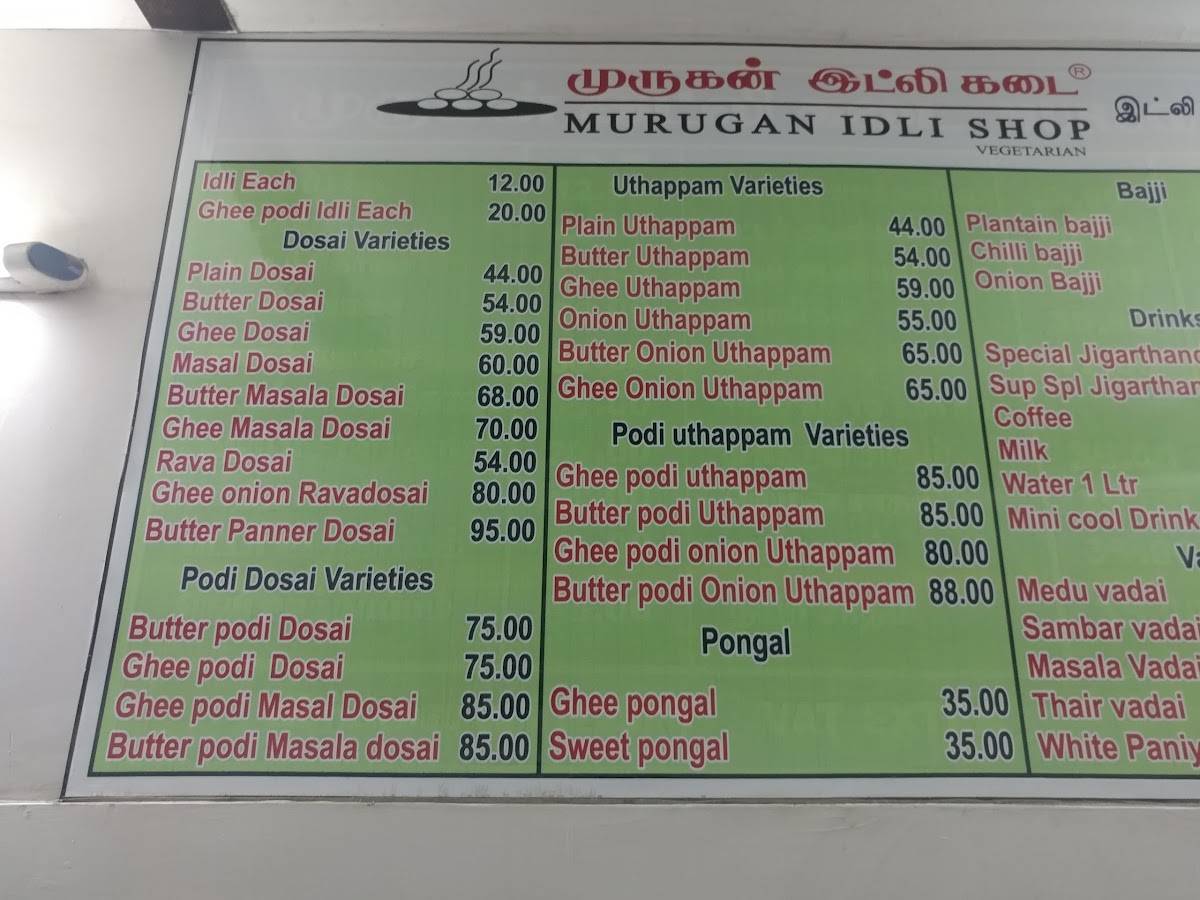 முருகன் இட்லி கடை®
MURUGAN IDLI SHOP
VEGETARIAN
இட்லி
Idli Each 12.00
Ghee podi Idli Each 20.00
Dosai Varieties
Plain Dosai 44.00
Butter Dosai 54.00
Ghee Dosai 59.00
Masal Dosai 60.00
Butter Masala Dosai 68.00
Ghee Masala Dosai 70.00
Rava Dosai 54.00
Ghee onion Ravadosai 80.00
Butter Panner Dosai 95.00
Podi Dosai Varieties
Butter podi Dosai 75.00
Ghee podi Dosai 75.00
Ghee podi Masal Dosai 85.00
Butter podi Masala dosai 85.00
Uthappam Varieties
Plain Uthappam 44.00
Butter Uthappam 54.00
Ghee Uthappam 59.00
Onion Uthappam 55.00
Butter Onion Uthappam 65.00
Ghee Onion Uthappam 65.00
Podi uthappam Varieties
Ghee podi uthappam 85.00
Butter podi Uthappam 85.00
Ghee podi onion Uthappam 80.00
Butter podi Onion Uthappam 88.00
Pongal
Ghee pongal 35.00
Sweet pongal 35.00
Bajji
Plantain bajji
Chilli bajji
Onion Bajji
Drinks
Special Jigarthand
Sup Spl Jigarthan
Coffee
Milk
Water 1 Ltr
Mini cool Drink
Va
Medu vadai
Sambar vadai
Masala Vadai
Thair vadai
White Paniy